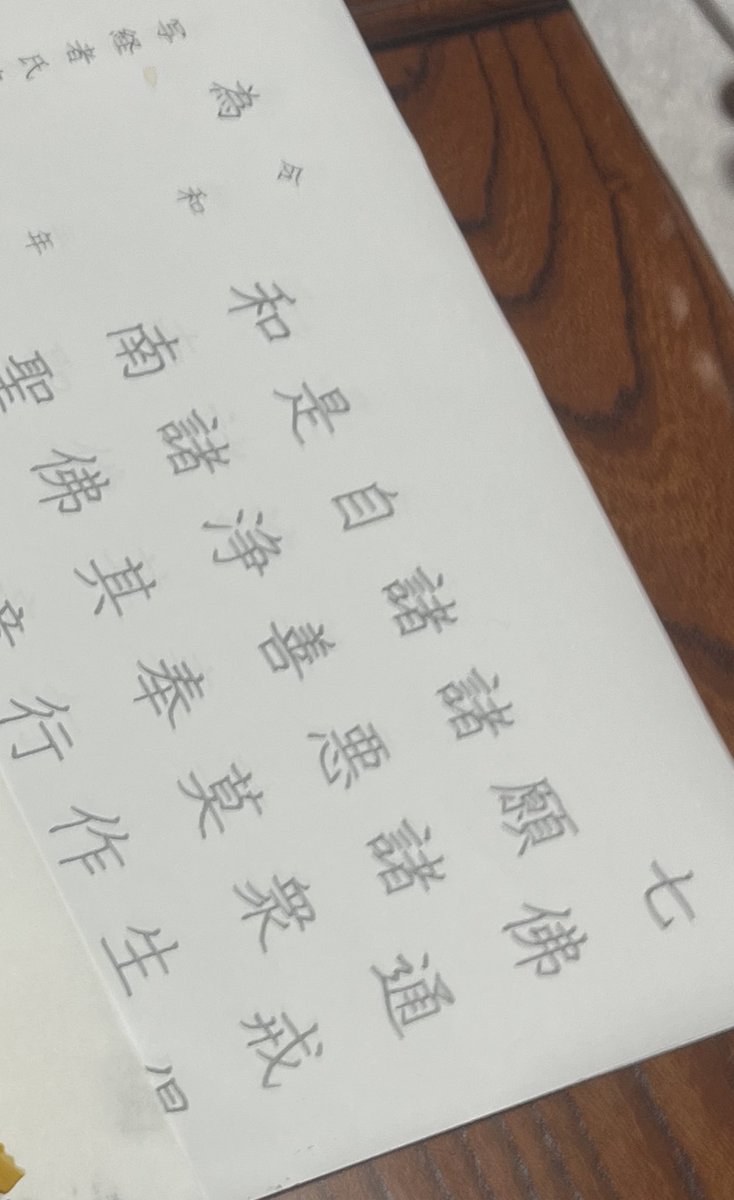 七佛通戒
願諸衆生
諸悪莫作
諸善奉行
自浄其
是諸佛
和南聖
令和 年
為
写経者氏